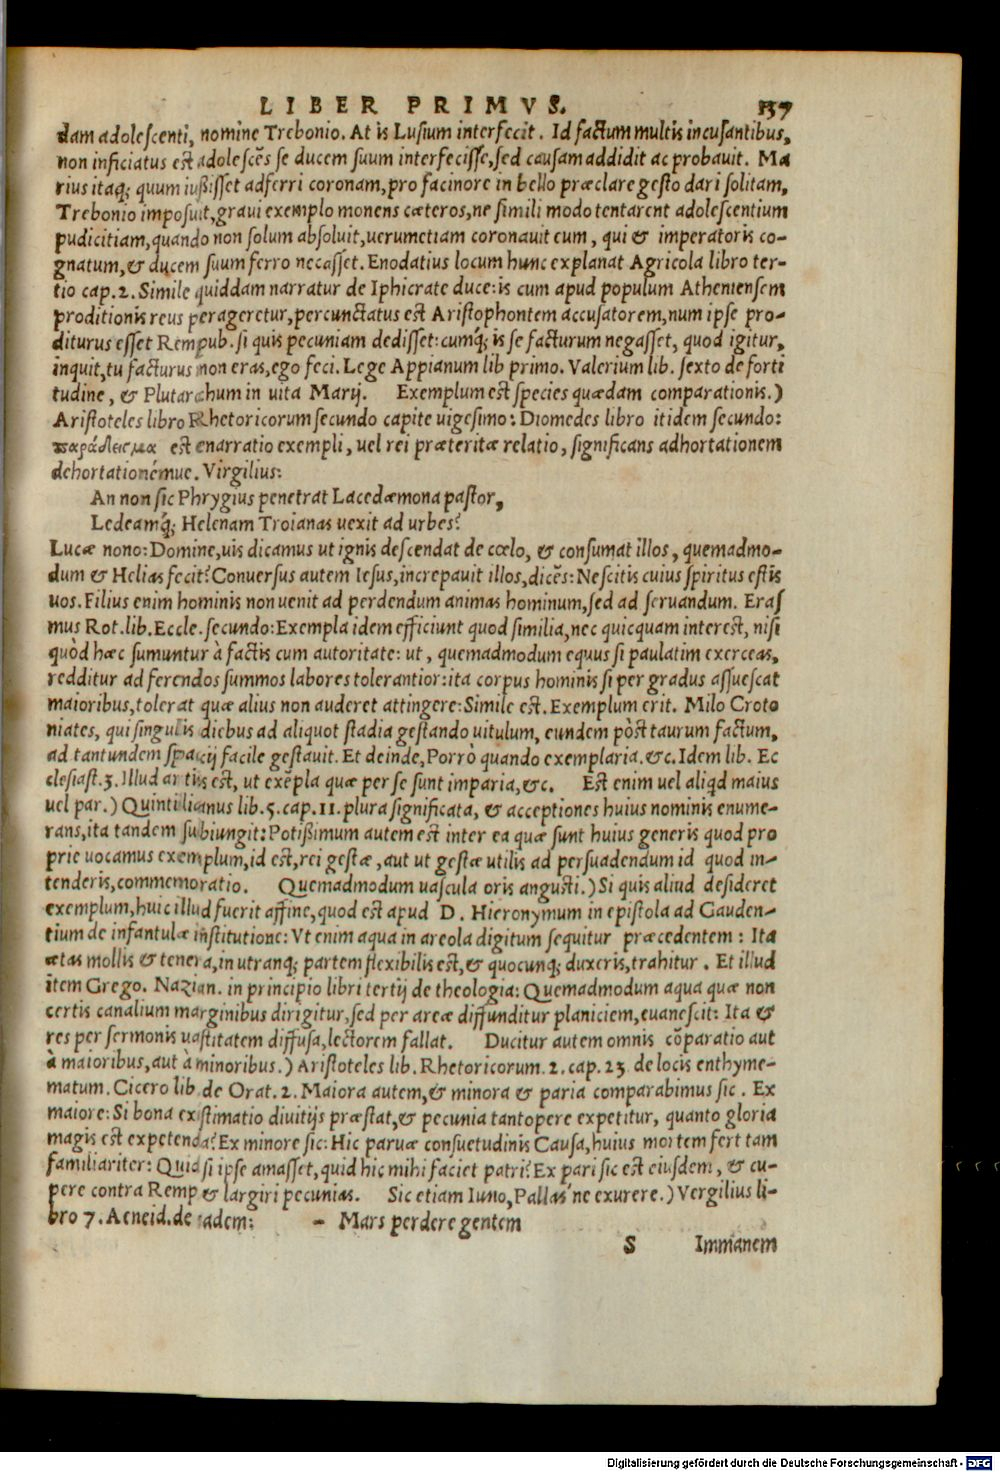 LIBER PRIMVS. 137
dam adolescenti, nomine Trebonio. At is Lusium interfecit. Id factum multis incusantibus,
non inficiatus est adolescẽs se ducem suum interfecisse, sed causam addidit ac probauit. Ma
rius itaq; quum iußisset adferri coronam, pro facinore in bello præclare gesto dari solitam,
Trebonio imposuit, graui exemplo monens cæteros, ne simili modo tentarent adolescentium
pudicitiam, quando non solum absoluit, uerumetiam coronauit eum, qui & imperatoris co-
gnatum, & ducem suum ferro necasset. Enodatius locum hunc explanat Agricola libro ter-
tio cap. 2. Simile quiddam narratur de Iphicrate duce: is cum apud populum Atheniensem
proditionis reus perageretur, percunctatus est Aristophontem accusatorem, num ipse pro-
diturus esset Rempub. si quis pecuniam dedisset: cumq; is se facturum negasset, quod igitur,
inquit, tu facturus non eras, ego feci. Lege Appianum lib primo. Valerium lib. sexto de forti
tudine, & Plutarchum in uita Marij. Exemplum est species quædam comparationis.)
Aristoteles libro Rhetoricorum secundo capite uigesimo: Diomedes libro itidem secundo:
παράδειγμα est enarratio exempli, uel rei præteritæ relatio, significans adhortationem
dehortationémue. Virgilius:
An non sic Phrygius penetrat Lacedæmona pastor,
Ledeamq́; Helenam Troianas uexit ad urbes?
Lucæ nono: Domine, uis dicamus ut ignis descendat de cœlo, & consumat illos, quemadmo-
dum & Helias fecit? Conuersus autem Iesus, increpauit illos, dicẽs: Nescitis cuius spiritus estis
uos. Filius enim hominis non uenit ad perdendum animas hominum, sed ad seruandum. Eras
mus Rot. lib. Eccle. secundo: Exempla idem efficiunt quod similia, nec quicquam interest, nisi
quòd hæc sumuntur à factis cum autoritate: ut, quemadmodum equus si paulatim exerceas,
redditur ad ferendos summos labores tolerantior: ita corpus hominis si per gradus assuescat
maioribus, tolerat quæ alius non auderet attingere: Simile est. Exemplum erit. Milo Croto
niates, qui singulis diebus ad aliquot stadia gestando uitulum, eundem pòst taurum factum,
ad tantundem spacij facile gestauit. Et deinde, Porrò quando exemplaria. &c. Idem lib. Ec
clesiast. 3. Illud artis est, ut exẽpla quæ per se sunt imparia, &c. Est enim uel aliqd maius
uel par.) Quintilianus lib. 5. cap. 11. plura significata, & acceptiones huius nominis enume-
rans, ita tandem subiungit: Potißimum autem est inter ea quæ sunt huius generis quod pro
prie uocamus exemplum, id est, rei gestæ, aut ut gestæ utilis ad persuadendum id quod in-
tenderis, commemoratio. Quemadmodum uascula oris angusti.) Si quis aliud desideret
exemplum, huic illud fuerit affine, quod est apud D. Hieronymum in epistola ad Gauden-
tium de infantulæ institutione: Vt enim aqua in areola digitum sequitur præcedentem: Ita
ætas mollis & tenera, in utranq; partem flexibilis est, & quocunq; duxeris, trahitur. Et illud
item Grego. Nazian. in principio libri tertij de theologia: Quemadmodum aqua quæ non
certis canalium marginibus dirigitur, sed per areæ diffunditur planiciem, euanescit: Ita &
res per sermonis uastitatem diffusa, lectorem fallat. Ducitur autem omnis cõparatio aut
à maioribus, aut à minoribus.) Aristoteles lib. Rhetoricorum. 2. cap. 23. de locis enthyme-
matum. Cicero lib. de Orat. 2. Maiora autem, & minora & paria comparabimus sic. Ex
maiore: Si bona existimatio diuitijs præstat, & pecunia tantopere expetitur, quanto gloria
magis est expetenda? Ex minore sic: Hic paruæ consuetudinis Causa, huius mortem fert tam
familiariter: Quid si ipse amasset, quid hic mihi faciet patri? Ex pari sic est eiusdem, & cu-
pere contra Remp & largiri pecunias. Sic etiam Iuno, Pallas ne exurere.) Vergilius li-
bro 7. Aeneid. de eadem: - Mars perdere gentem
S Immanem
Digitalisierung gefördert durch die Deutsche Forschungsgemeinschaft - DFG